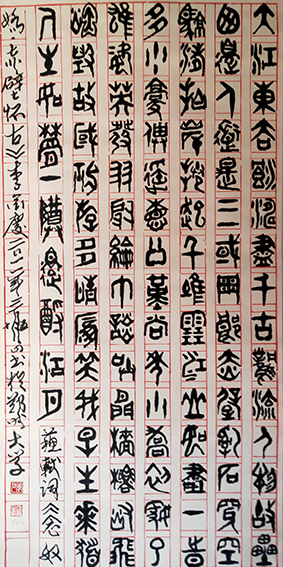 大江東去浪淘盡千古風流人物故壘
西邊人道是三國周郎赤壁亂石穿空
驚濤拍岸捲起千堆雪江山如畫一時
多少豪傑遙想公瑾當年小喬初嫁了
雄姿英發羽扇綸巾談笑間檣櫓灰飛
煙滅故國神遊多情應笑我早生華髮
人生如夢一樽還酹江月 蘇軾詞念奴
嬌赤壁怀古 李 慶二〇一 年三月 書於 大学